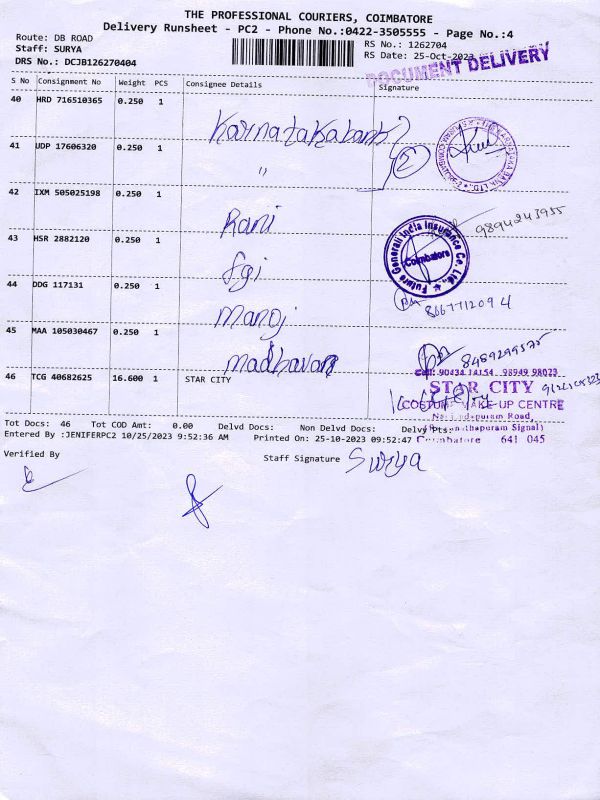 THE PROFESSIONAL COURIERS, COIMBATORE
Delivery Runsheet - PC2 - Phone No.:0422-3505555 - Page No.:4
Route: DB ROAD
RS No.: 1262704
Staff: SURYA
RS Date: 25-Oct-2023
DRS No.: DCJB126270404
DOCUMENT DELIVERY
S No Consignment No Weight PCS Consignee Details Signature
40 HRD 716510365 0.250 1
Karnataka bank
41 UDP 17606320 0.250 1
"
42 IXM 505025198 0.250 1
Rani
9894243955
43 HSR 2882120 0.250 1
fgi
Future Generali India Insurance Co. Ltd.,
Coimbatore
44 DDG 117131 0.250 1
Manoj
45 MAA 105030467 0.250 1
madhavan
8489299575
46 TCG 40682625 16.600 1 STAR CITY
Cell: 90434 14154 98949 98023
STAR CITY
COSTUME MAKE-UP CENTRE
Coimbatore 641 045
Tot Docs: 46 Tot COD Amt: 0.00 Delvd Docs: Non Delvd Docs: Delvy Pts:
Entered By :JENIFERPC2 10/25/2023 9:52:36 AM Printed On: 25-10-2023 09:52:47
Verified By
Staff Signature Surya